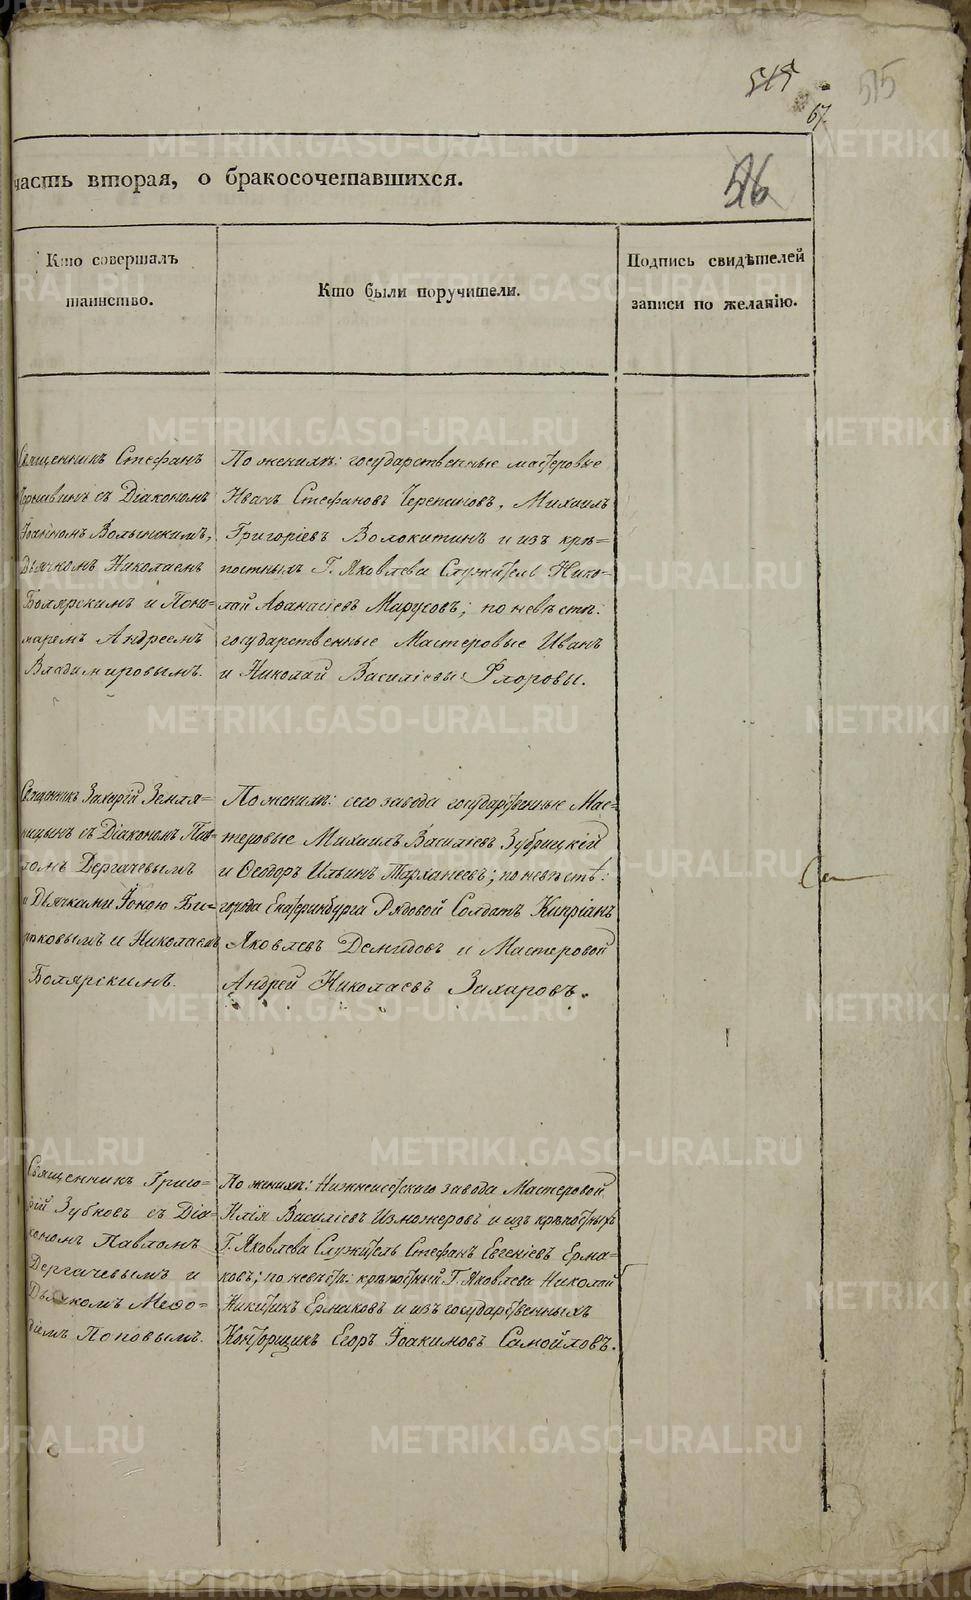 515
515
67.
516
часть вторая, о бракосочетавшихся.
Кто совершалъ
таинство.
Кто были поручители.
Подпись свидѣтелей
записи по желанію.
Священникъ Стефанъ
съ Діакономъ
Іоанномъ Волынскимъ,
Дьячкомъ Николаемъ
Боярскимъ и Поно-
маремъ Андреемъ
Владимировымъ.
По женихѣ: государственные мастеровые
Иванъ Стефановъ Черепановъ, Михаилъ
Григоріевъ Волокитинъ и изъ крѣ-
постныхъ Г. Яковлева Служитель Нико-
лай Афанасіевъ Марусовъ; по невѣстѣ:
государственные Мастеровые Иванъ
и Николай Василіевы Флоровы.
Священникъ Захарій Земля-
ницынъ съ Діакономъ Пав-
ломъ Дергачевымъ
и Дьячками Іоною Би-
рюковымъ и Николаемъ
Боярскимъ.
По женихѣ: сего завода государственные Мас-
теровые Михаилъ Василіевъ Зубрицкій
и Ѳеодоръ Ильинъ Тарханеевъ; по невѣстѣ:
города Екатеринбурга Рядовой Солдатъ Кипріанъ
Яковлевъ Демидовъ и Мастеровой
Андрей Николаевъ Захаровъ.
Священникъ Григо-
рій Зубковъ съ Діа-
кономъ Павломъ
Дергачевымъ и
Дьячкомъ Меѳо-
діемъ Поповымъ.
По женихѣ: Нижнеисетскаго завода Мастеровой
Илія Василіевъ Изможеровъ и изъ крѣпостныхъ
Г. Яковлева Служитель Стефанъ Евгеніевъ Ерма-
ковъ; по невѣстѣ: крѣпостный Г. Яковлева Николай
Никитинъ Ермаковъ и изъ государственныхъ
Конторщикъ Егоръ Іоакимовъ Самойловъ.
METRIKI.GASO-URAL.RU